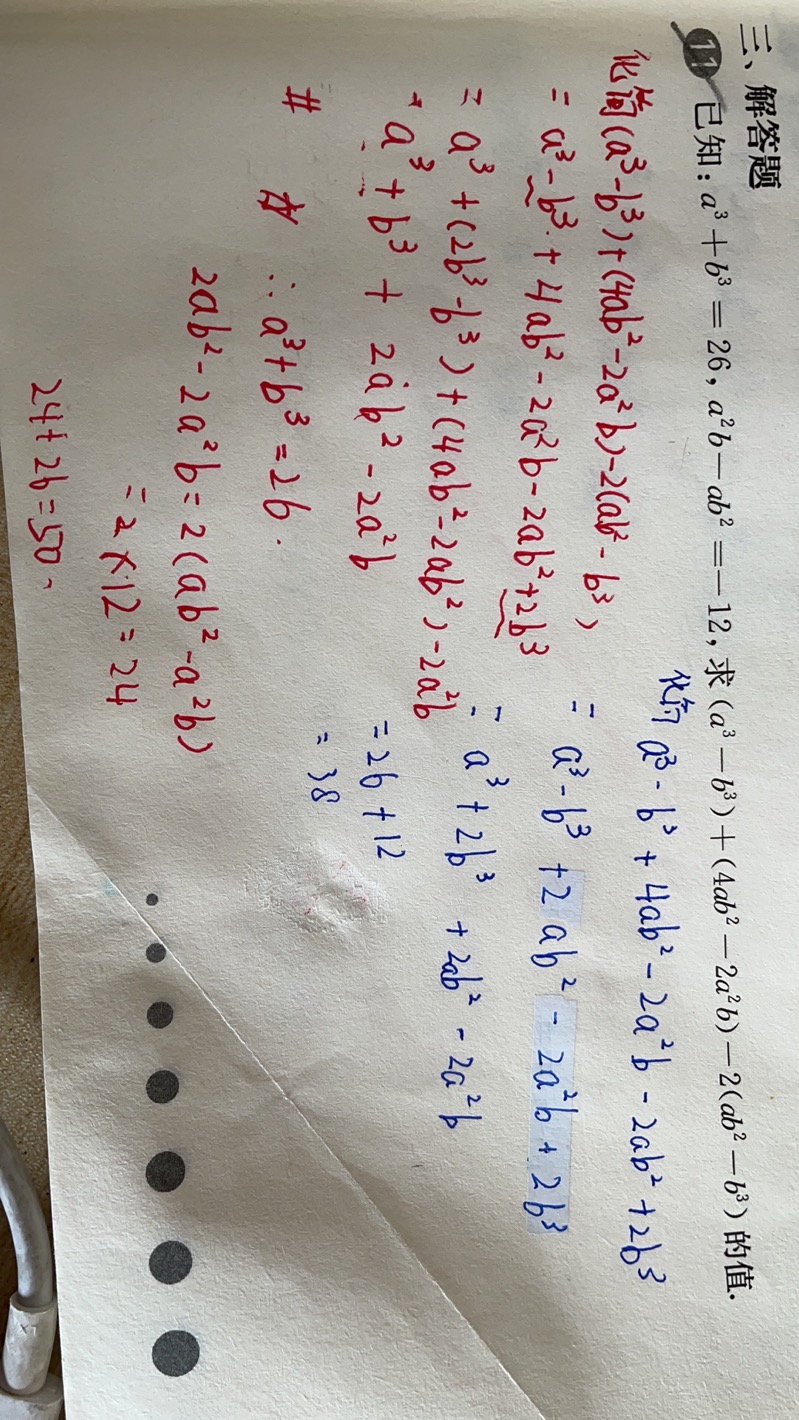 三、解答题
11 已知：a³+b³ = 26, a²b-ab² =-12, 求 (a³-b³)+(4ab²-2a²b)-2(ab²-b³) 的值.
化简(a³-b³)+(4ab²-2a²b)-2(ab²-b³)
= a³-b³+4ab²-2a²b-2ab²+2b³
= a³+(2b³-b³)+(4ab²-2ab²)-2a²b
= a³+b³+2ab²-2a²b
∴a³+b³=26.
2ab²-2a²b=2(ab²-a²b)
=2×12=24
24+26=50
化简 a³-b³+4ab²-2a²b-2ab²+2b³
= a³-b³+2ab²-2a²b+2b³
= a³+2b³+2ab²-2a²b
=26+12
= 38